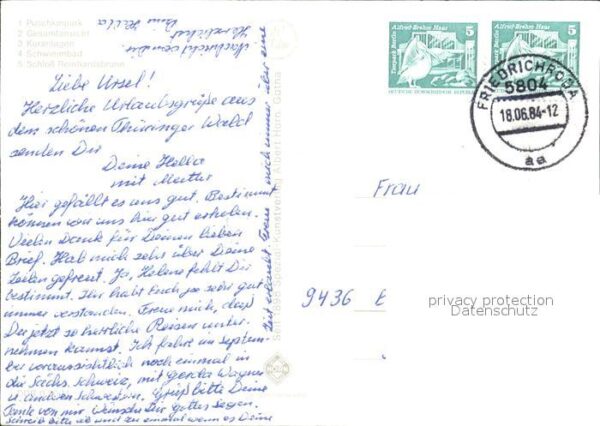 1 Puschkinpark
2 Gesamtansicht
3 Kuranlagen
4 Schwimmbad
5 Schloß Reinhardsbrunn
Liebe Ursel!
Herzliche Urlaubsgrüße aus
dem schönen Thüringer Wald
senden Dir
Deine Hella
mit Mutter
Hier gefällt es uns gut. Bestimmt
können wir uns hier gut erholen.
Vielen Dank für Deinen lieben
Brief. Hab mich sehr über Deine
Zeilen gefreut. Ja, Helene fehlt Dir
bestimmt. Ihr habt Euch ja sehr gut
immer verstanden. Freue mich, daß
Du jetzt so herrliche Reisen unter-
nehmen kannst. Ich fahre im Septem-
ber voraussichtlich noch einmal in
die Sächs. Schweiz, mit Gerda Wagner
u. anderen Schwestern. Grüß bitte Deine
Tante von mir. Wünsche Dir Gottes Segen.
Schreib bitte ab und zu einmal wenn es Deine
Zeit erlaubt. Freue mich immer über eine
Nachricht von Dir.
Herzlichst
Deine Hella
Alfred-Brehm-Haus
Tierpark Berlin
5
DEUTSCHE DEMOKRATISCHE REPUBLIK
Alfred-Brehm-Haus
5
FRIEDRICHRODA
5804
18.06.84-12
aa
Frau
9436 E
privacy protection
Datenschutz